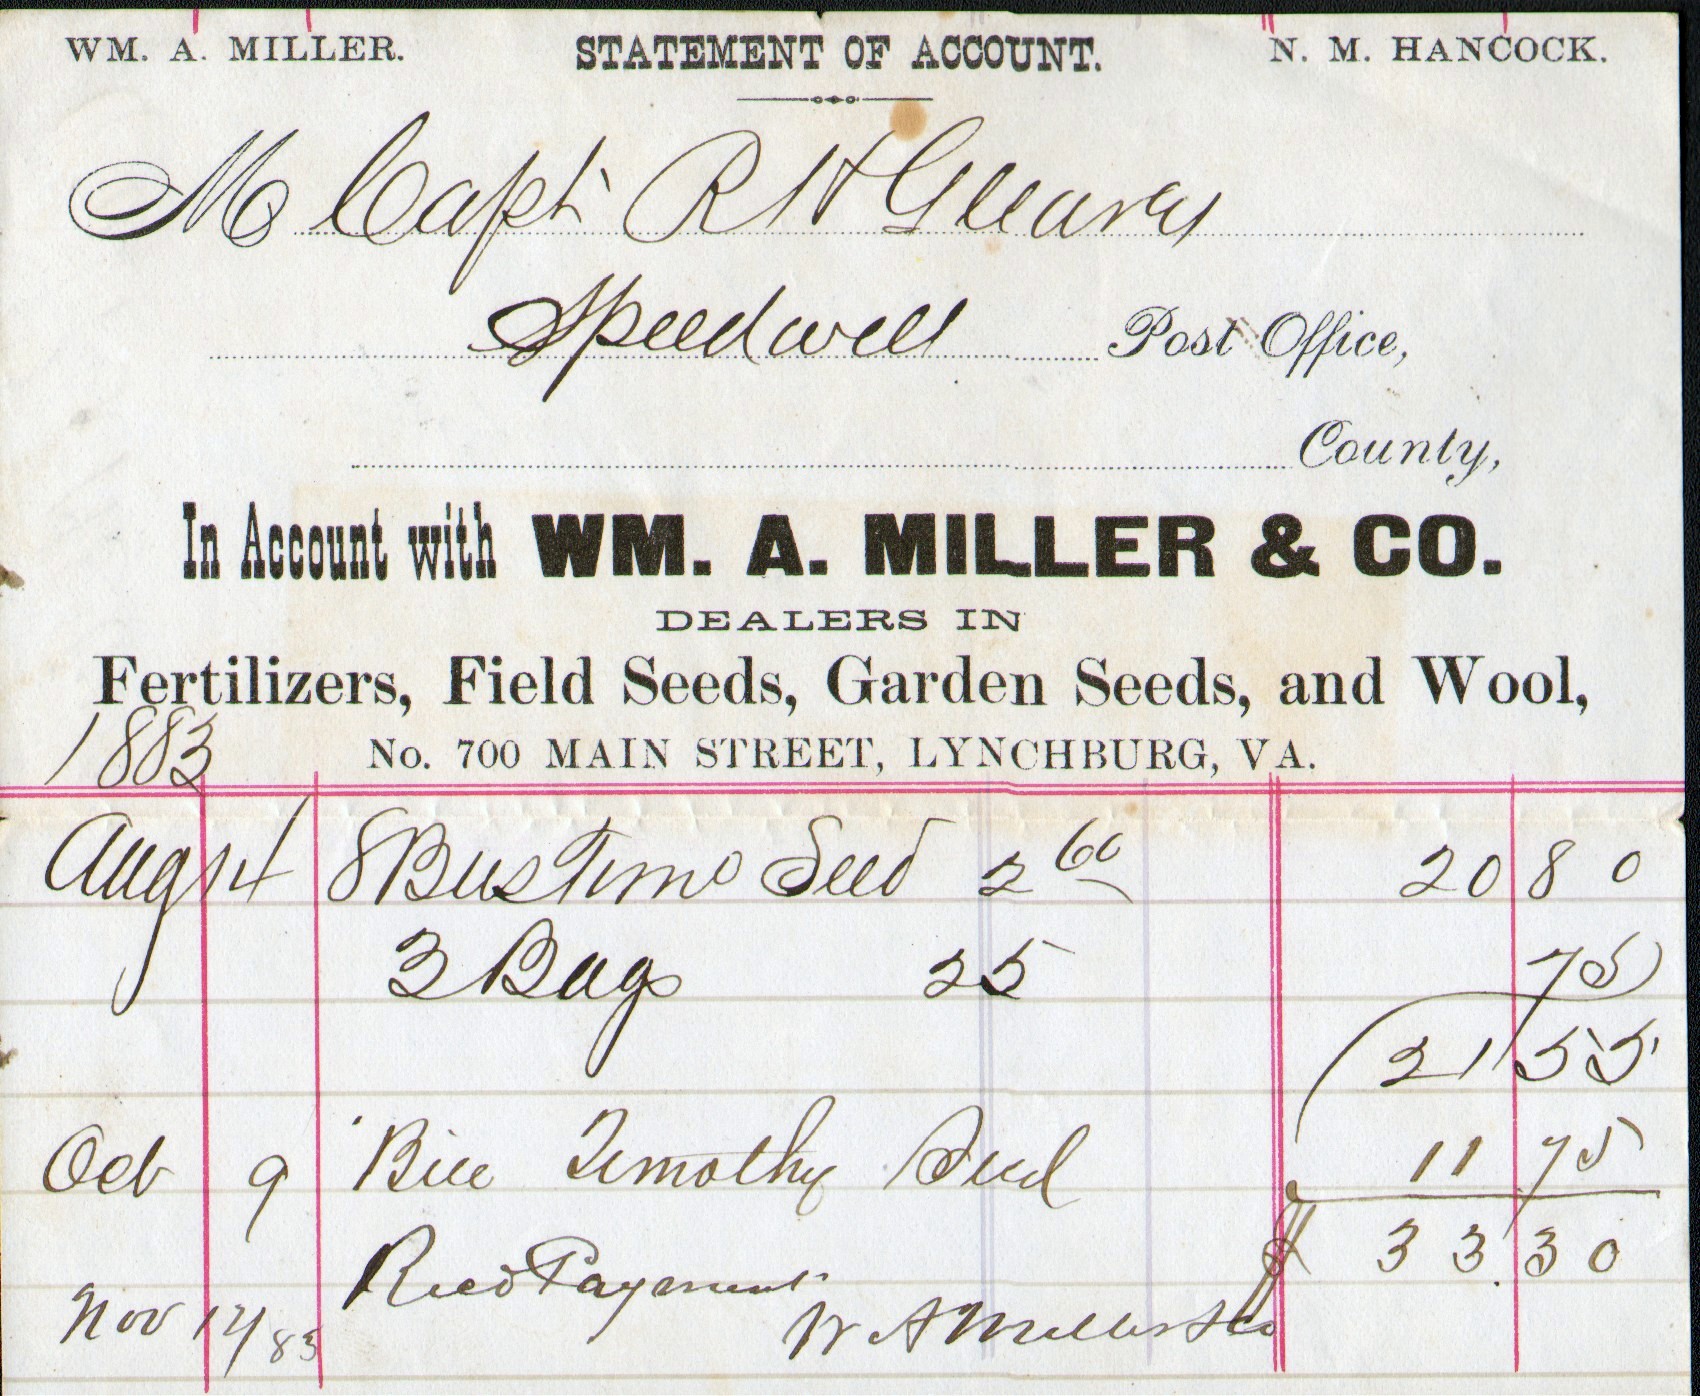 WM. A. MILLER. STATEMENT OF ACCOUNT. N. M. HANCOCK.
M Capt R H Gleavey
Speedwell Post Office,
County,
In Account with WM. A. MILLER & CO.
DEALERS IN
Fertilizers, Field Seeds, Garden Seeds, and Wool,
No. 700 MAIN STREET, LYNCHBURG, VA.
1883
Aug 14 8 Bus Timo Seed 2 60 20 80
3 Bags 25 75
21 55
Oct 9 Bill Timothy Seed 11 75
$ 33.30
Recd Payment
Nov 14/83 W A Miller & Co